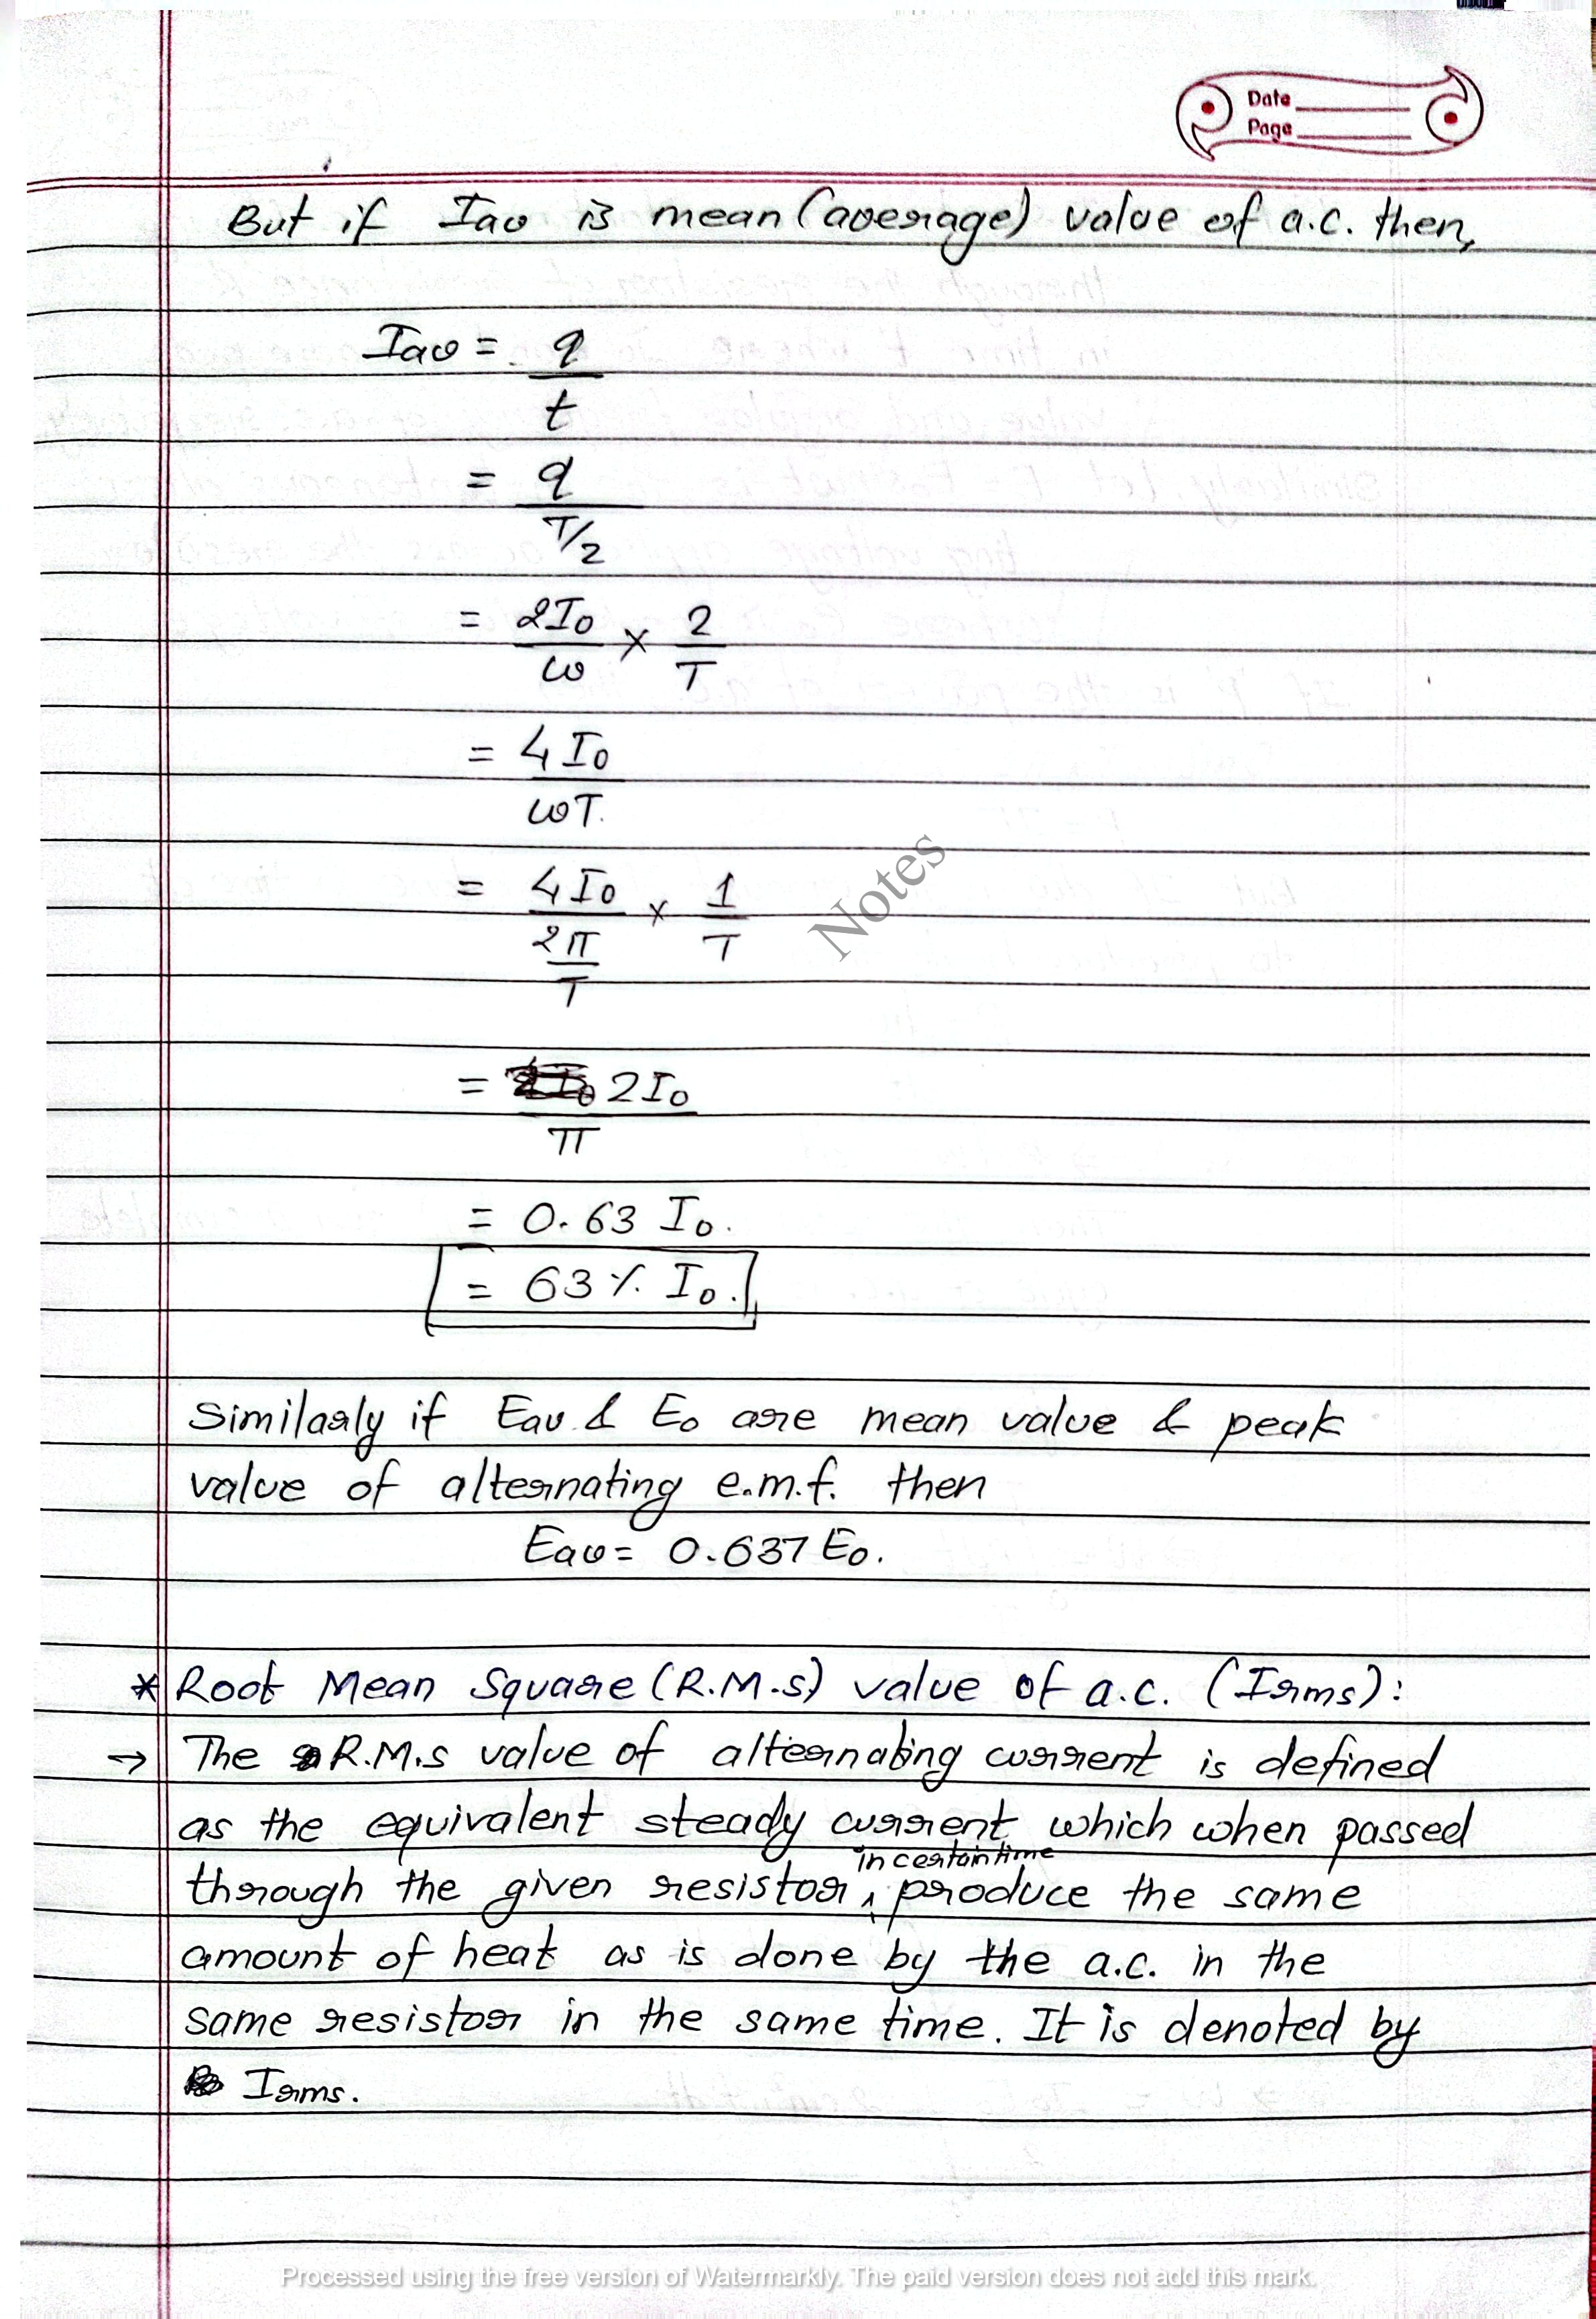 Date
Page
But if Iav is mean (average) value of a.c. then,
Iav = q/t
= q/(T/2)
= 2I₀/ω × 2/T
= 4I₀/ωT.
= 4I₀/(2π/T) × 1/T
= 2I₀/π
= 0.63 I₀.
= 63% I₀.
Similarly if Eav & E₀ are mean value & peak
value of alternating e.m.f. then
Eav = 0.637 E₀.
* Root Mean Square (R.M.S) value of a.c. (Irms):
→ The R.M.S value of alternating current is defined
as the equivalent steady current which when passed
through the given resistor in certain time produce the same
amount of heat as is done by the a.c. in the
same resistor in the same time. It is denoted by
Irms.
Notes
Processed using the free version of Watermarkly. The paid version does not add this mark.